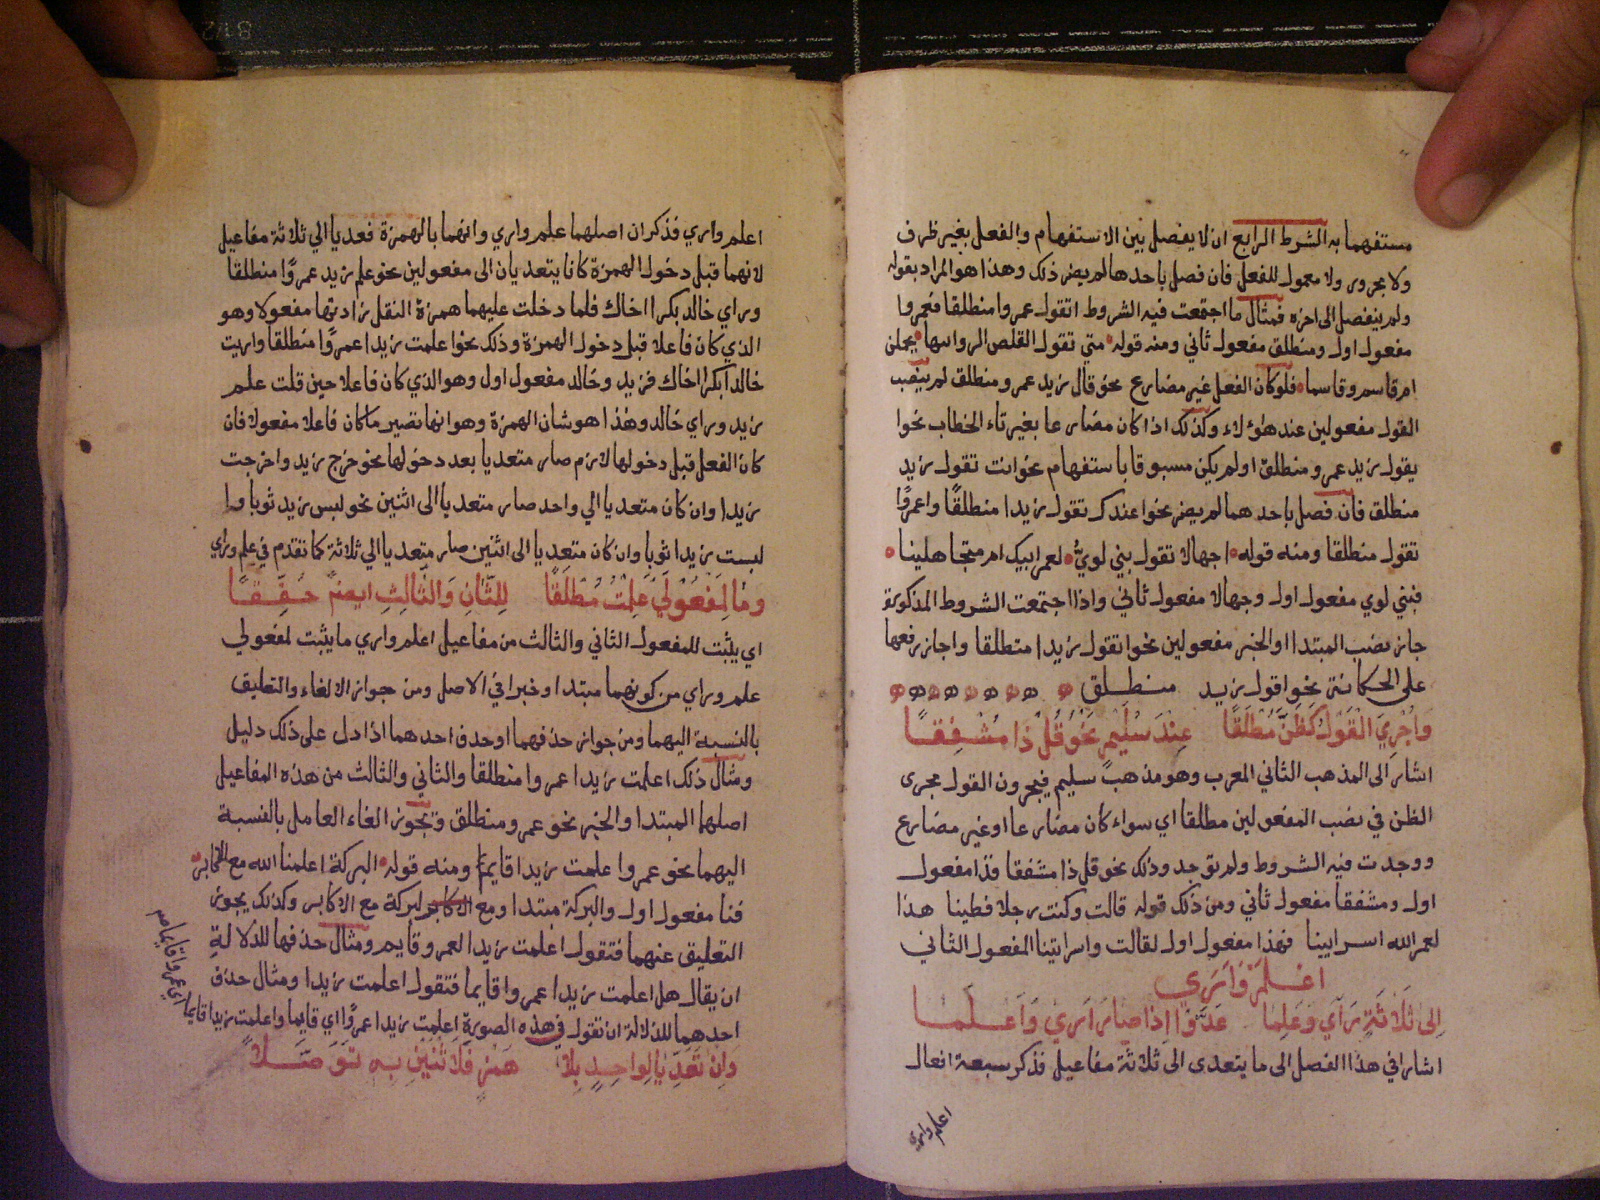 مستفهما به الشرط الرابع ان لا يفصل بين الاستفهام والفعل بغير ظرف
ولا مجرور ولا معمول للفعل فان فصل باحدها لم يضر ذلك وهذا هو المراد بقوله
ولم ينفصل الى اخره فمثال ما اجتمعت فيه الشروط اتقول عمروا منطلقا فعمروا
مفعول اول ومنطلق مفعول ثاني ومنه قوله متى تقول القلص الرواسما يحملن
ام قاسم وقاسما فلو كان الفعل غير مضارع نحو قال زيد عمرو منطلق لم ينصب
القول مفعولين عند هؤلاء وكذلك اذا كان مضارعا بغير تاء الخطاب نحوا
يقول زيد عمرو منطلق او لم يكن مسبوقا باستفهام نحو انت تقول زيد
منطلق فان فصل باحدهما لم يضر نحوا عندك تقول زيدا منطلقًا واعمروًا
تقول منطلقا ومنه قوله اجهالا تقول بني لويٌ لعمر ابيك ام متجاهلينا
فبني لوي مفعول اول وجهالا مفعول ثاني واذا اجتمعت الشروط المذكورة
جاز نصب المبتدا والخبر مفعولين نحوا تقول زيدا منطلقا واجاز رفعها
على الحكاية نحوا قول زيد منطلق
وَاُجْرِيَ الْقَوْلُ كَظَنٍّ مُطْلَقًا عِنْدَ سُلَيْمٍ نَحْوُ قُلْ ذَا مُشْفِقًا
اشار الى المذهب الثاني المعرب وهو مذهب سليم فيجرون القول مجرى
الظن في نصب المفعولين مطلقا اي سواء كان مضارعا او غير مضارع
ووجدت فيه الشروط ولم توجد وذلك نحو قل ذا مشفقا فذا مفعول
اول ومشفقا مفعول ثاني ومن ذلك قوله قالت وكنت رجلا فطينا هذا
لعمر الله اسرايينا فهذا مفعول اول لقالت واسرايينا المفعول الثاني
اعْلَمَ وَاَرَى
اِلى ثَلَاثَةٍ رَآي وَعَلِمَا عَدَّوْا اِذَا صَارَ اَرَي وَاَعْلَمَا
اشار في هذا الفصل الى ما يتعدى الى ثلاثة مفاعيل فذكر سبعة افعال
اعلم واري
اعلم واري فذكر ان اصلهما علم وراي وانهما بالهمزة فعديا الي ثلاثة مفاعيل
لانهما قبل دخول الهمزة كانا يتعديان الى مفعولين نحو علم زيد عمروًا منطلقا
وراي خالد بكرا اخاك فلما دخلت عليهما همزة النقل زادتها مفعولا وهو
الذي كان فاعلا قبل دخول الهمزة وذلك نحوا علمت زيدا عمروًا منطلقا واريت
خالدا بكرا اخاك فزيد وخالد مفعول اول وهو الذي كان فاعلا حين قلت علم
زيد وراي خالد وهذا هو شان الهمزة وهو انها تصير ما كان فاعلا مفعولا فان
كان الفعل قبل دخولها لازم صار متعديا بعد دخولها نحو خرج زيد واخرجت
زيدا وان كان متعديا الي واحد صار متعديا الى اثنين نحو لبس زيد ثوبا وا
لبست زيدا ثوبا وان كان متعديا الى اثنين صار متعديا الي ثلاثة كما تقدم في علم وراي
وَمَا لِمَفْعُولَيْ عَلِمْتُ مُطْلَقًا لِلثَّانِ وَالثَّالِثِ ايضا حُقِّقًا
اي يثبت للمفعول الثاني والثالث من مفاعيل اعلم واري ما يثبت لمفعولي
علم وراي من كونهما مبتدا وخبرا في الاصل ومن جواز الالغاء والتعليق
بالنسبة اليهما ومن جواز حذفهما او حذف احدهما اذا دل على ذلك دليل
ومثال ذلك اعلمت زيدا عمروا منطلقا والثاني والثالث من هذه المفاعيل
اصلها المبتدا والخبر نحو عمرو منطلق وتجوز الغاء العامل بالنسبة
اليهما نحو عمروا علمت زيدا قايم ومنه قوله البركة اعلمنا الله مع الاكابر
فنا مفعول اول والبركة مبتدا ومع الاكابر لبركة مع الاكابر وكذلك يجوز
التعليق عنهما فتقول اعلمت زيدا لعمرو قايم ومثال حذفها للدلالة
ان يقال هل اعلمت زيدا عمروا قايما فتقول اعلمت زيدا ومثال حذف
احدهما للدلالة ان تقول في هذه الصورة اعلمت زيدا عمروًا اي قايما واعلمت زيدا قايما
اي عمروا قايما
وَاِنْ تَعَدَّيَا لِوَاحِدٍ بِلَا هَمْزٍ فَلِاثْنَيْنِ بِهِ تَوَصَّلَا